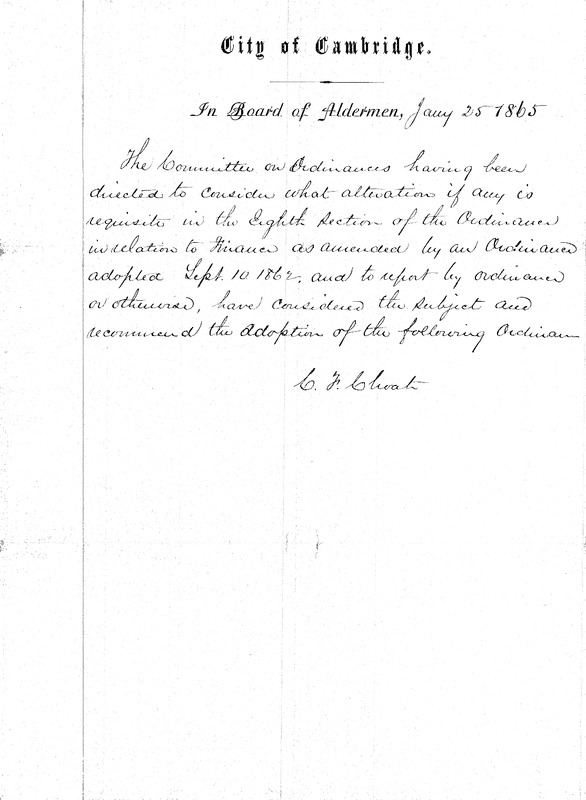 City of Cambridge.
In Board of Aldermen, Jany 25 1865
The Committee on Ordinances having been
directed to consider what alteration if any is
requisite in the Eighth Section of the Ordinance
in relation to Finance as amended by an Ordinance
adopted Sept. 10 1862, and to report by ordinance
or otherwise, have considered the subject and
recommend the adoption of the following Ordinance
C. F. Choate